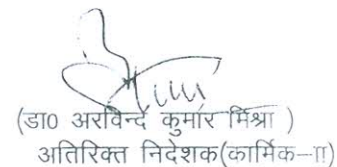 (डा0 अरविन्द कुमार मिश्रा )
अतिरिक्त निदेशक(कार्मिक–II)